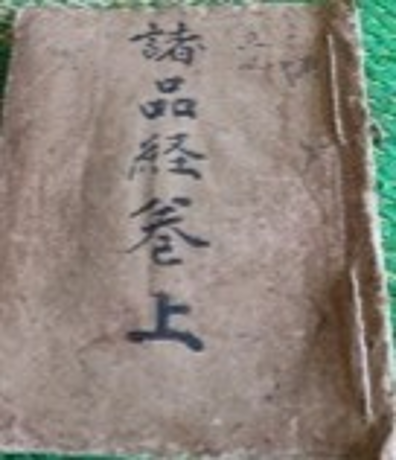 諸品経巻上